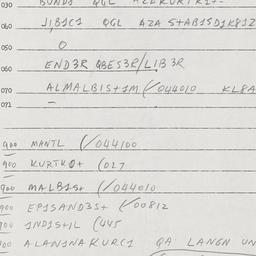 030
040 J1B1C1 QGL AZA S+AB1SD1K81Z
050 O
060 END3R QBES3R/L1B3R
070 ALMALB1S+1M (/044010 KL8A
071 —
900 MANTL (/044100
900 KURTKO+ (027
900 MALB1S+ (/044010
900 EP1SAND3S+ (/00812
900 1ND1S+1L (445
900 ALAN1NAKURC1 QA LANGN UN